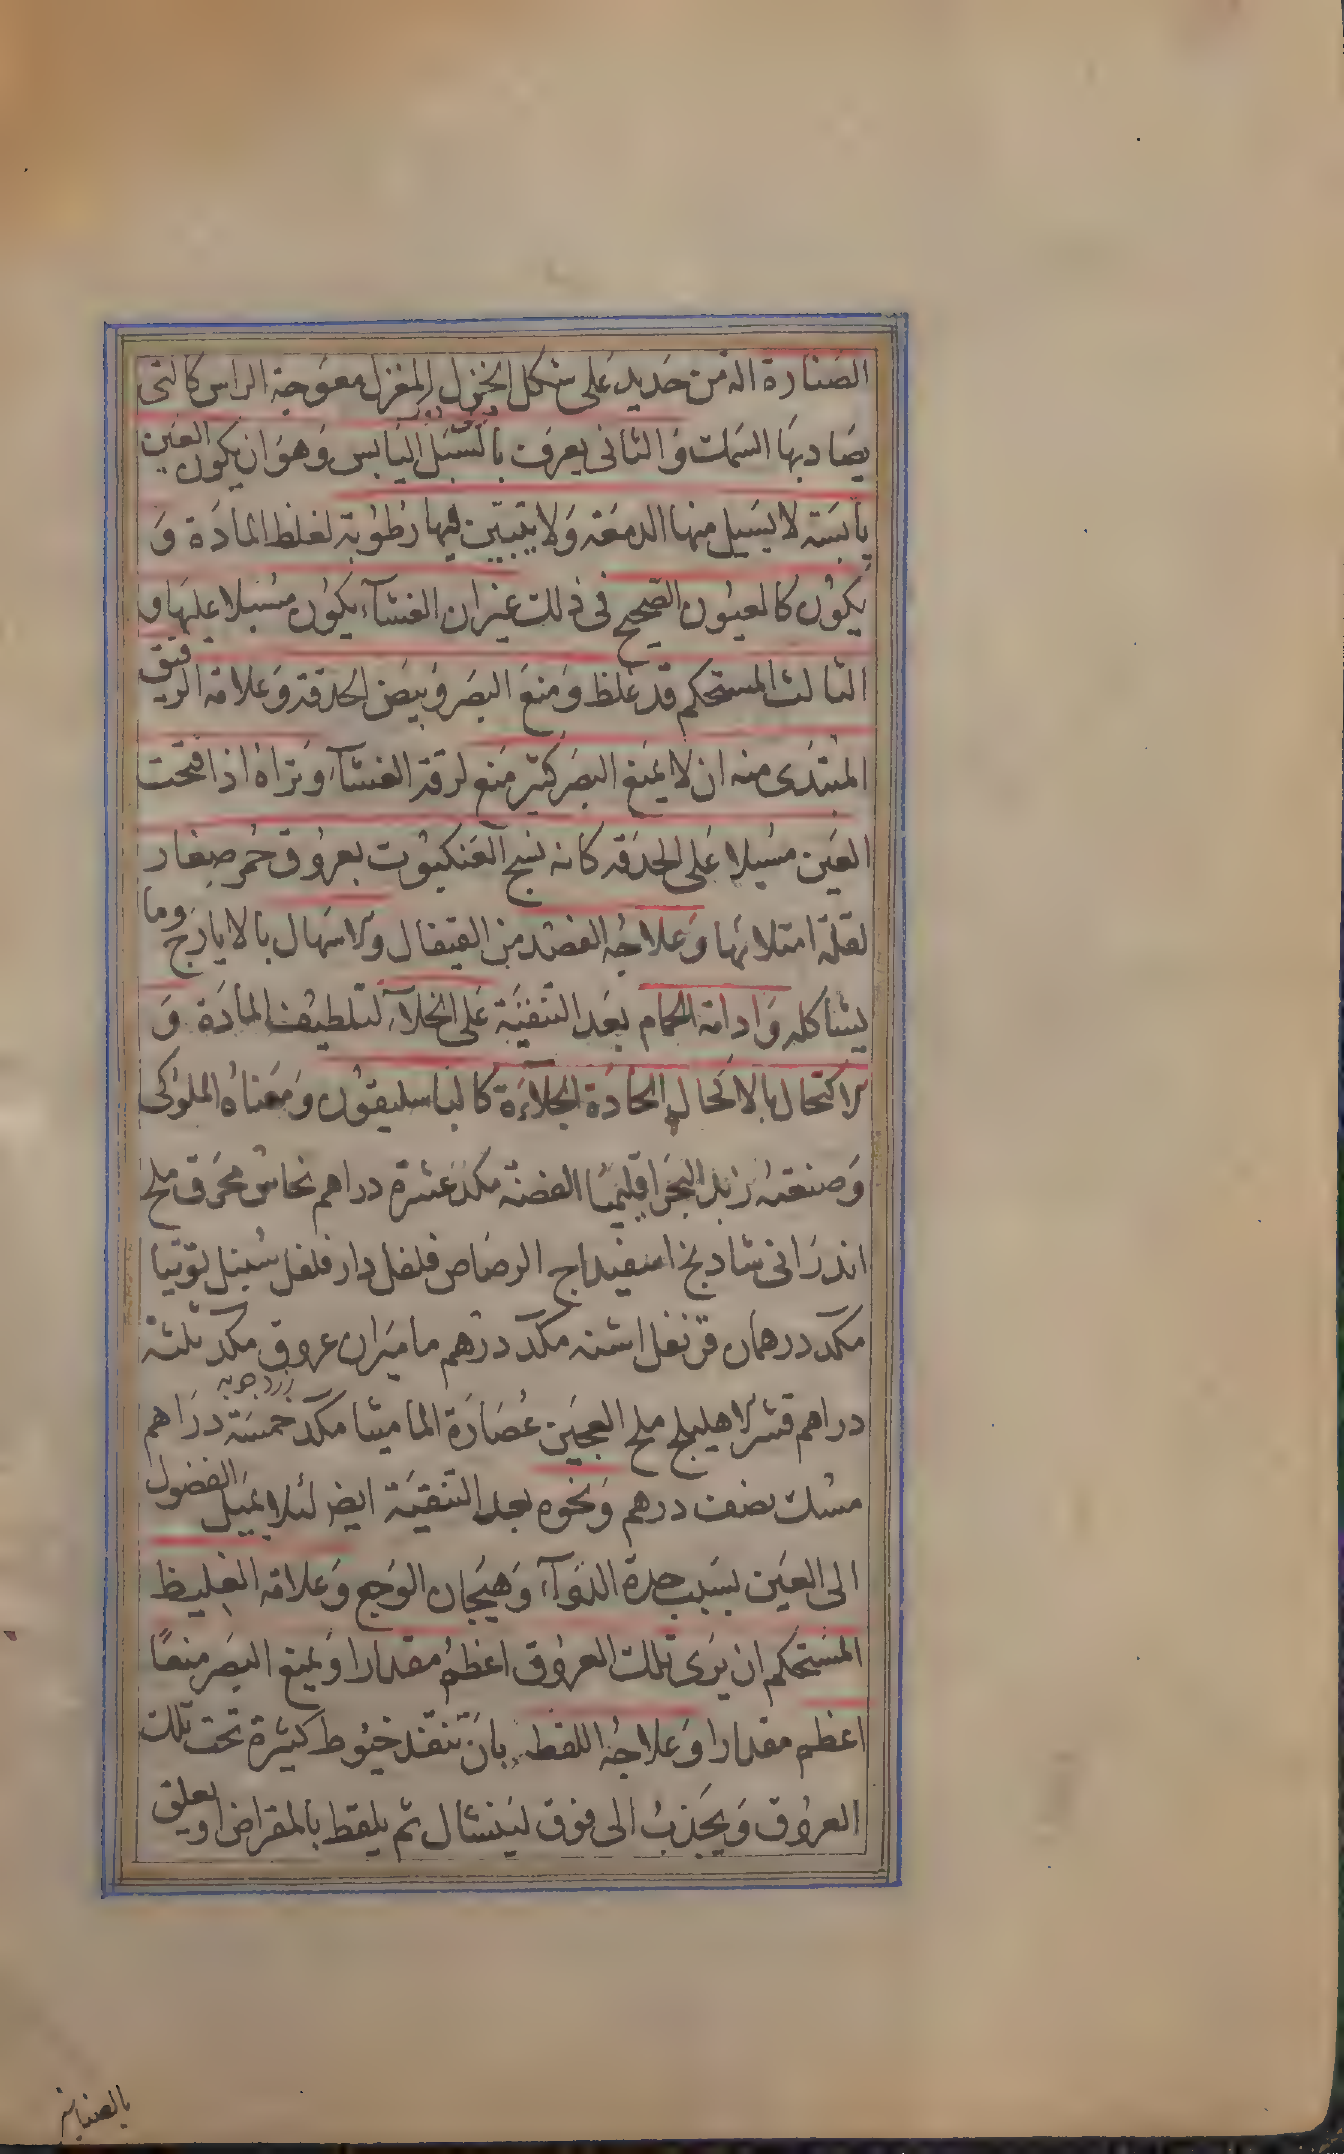 الصنارة الة من حديد على شكل المغزل معوجة الراس كالتى
يصاد بها السمك و الثانى يعرف بالسبل اليابس و هو ان يكون العين
يابسة لا يسيل منها الدمعة و لا يتبين فيها رطوبة لغلظ المادة و
يكون كالعيون الصحيح فى ذلك غير ان الغشاء يكون مسبلا عليها و
الثالث المستحكم قد غلظ و منع البصر و بيض الحدقة و علامة الرقيق
المبتدى منه ان لا يمنع البصر كثير منع لرقة الغشاء و تراه اذا فتحت
العين مسبلا على الحدقة كانه نسج العنكبوت بعروق حمر صغار
لقلة امتلائها و علاجه الفصد من القيفال و الاسهال بالايارج و ما
يشاكله و ادامة الحمام بعد التنقية على الخلاء لتلطيف المادة و
الاكتحال بالاكحال الحادة الجلاءة كالباسليقون و معناه الملوكى
و صنعته زبد البحر اقليميا الفضة مكد عشرة دراهم نحاس محرق ملح
اندرانى شادنج اسفيداج الرصاص فلفل دار فلفل سنبل توتيا
مكد درهمان قرنفل اشنه مكد درهم ماميران عروق مكد ثلثة
زرد جوبه
دراهم قشر الاهليلج ملح العجين عصارة الماميثا مكد خمسة دراهم
مسك نصف درهم و نحوه بعد التنقية ايض لئلا يميل الفضول
الى العين بسبب حدة الدواء و هيجان الوجع و علامة الغليظ
المستحكم ان يرى تلك العروق اعظم مقدارا و يمنع البصر منعا
اعظم مقدارا و علاجه اللقط بان تنفذ خيوط كثيرة تحت تلك
العروق و يجذب الى فوق لينشال ثم يلقط بالمقراض او يعلق